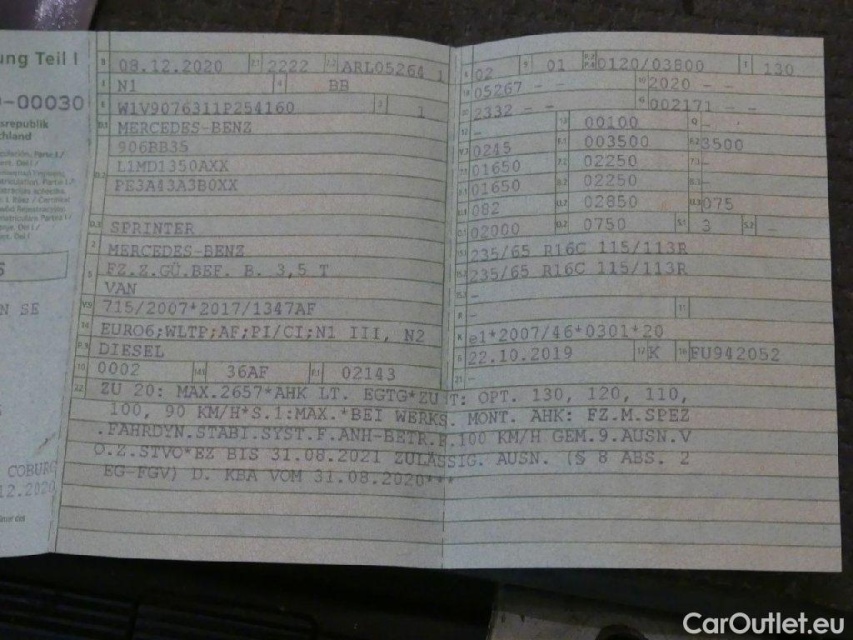 ung Teil I
-00030
srepublik
chland
08.12.2020 2222 ARL05264 1
N1 BB
W1V9076311P254160 1
MERCEDES-BENZ
906BB35
L1MD1350AXX
PE3A43A3B0XX
SPRINTER
MERCEDES-BENZ
FZ.Z.GÜ.BEF. B. 3,5 T
VAN
715/2007*2017/1347AF
EURO6;WLTP;AF;PI/CI;N1 III, N2
DIESEL
0002 36AF 02143
02 01 D120/03800 130
05267 - - 2020 - -
2332 - - 002171 - -
- 00100 -
0245 003500 3500
01650 02250 -
01650 02250 -
082 02850 075
02000 0750 3 -
235/65 R16C 115/113R
235/65 R16C 115/113R
-
-
e1*2007/46*0301*20
22.10.2019 K FU942052
-
ZU 20: MAX.2657*AHK LT. EGTG*ZU T: OPT. 130, 120, 110,
100, 90 KM/H*S.1:MAX.*BEI WERKS. MONT. AHK: FZ.M.SPEZ
.FAHRDYN.STABI.SYST.F.ANH-BETR.B.100 KM/H GEM.9.AUSN.V
O.Z.STVO*EZ BIS 31.08.2021 ZULÄSSIG. AUSN. (§ 8 ABS. 2
EG-FGV) D. KBA VOM 31.08.2020***
N SE
COBURG
12.2020
CarOutlet.eu